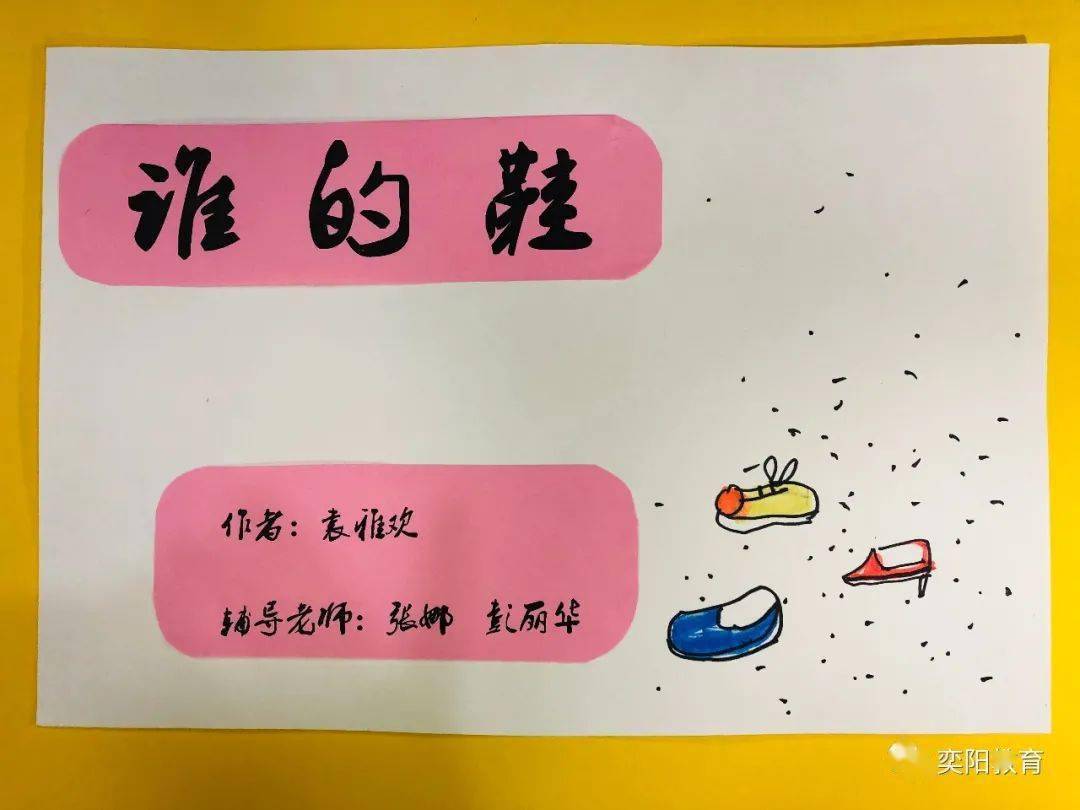 谁的鞋
作者：袁雅欢
辅导老师：张娜 彭丽华
奕阳教育